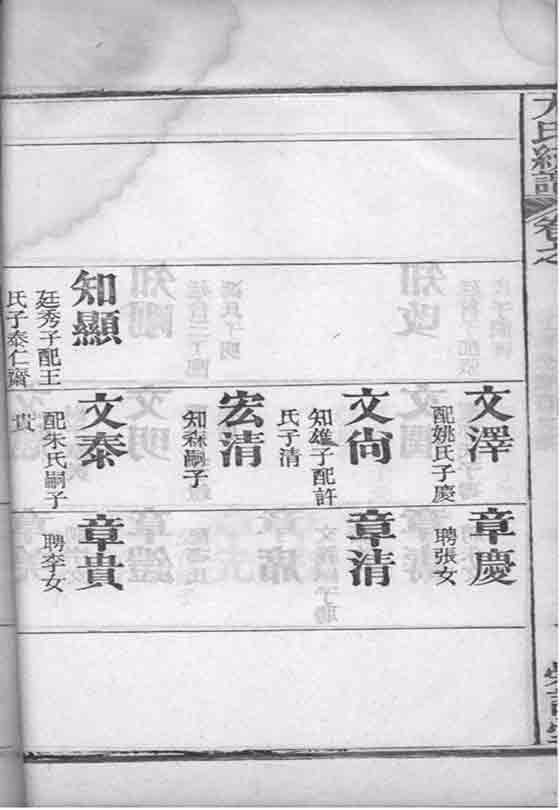 氏統譜
卷之
知顯
廷秀子配王
氏子泰仁齋
文澤
配姚氏子慶
文尙
知雄子配許
氏子清
宏清
知森嗣子
文泰
配朱氏嗣子
貴
章慶
聘張女
章清
章貴
聘李女